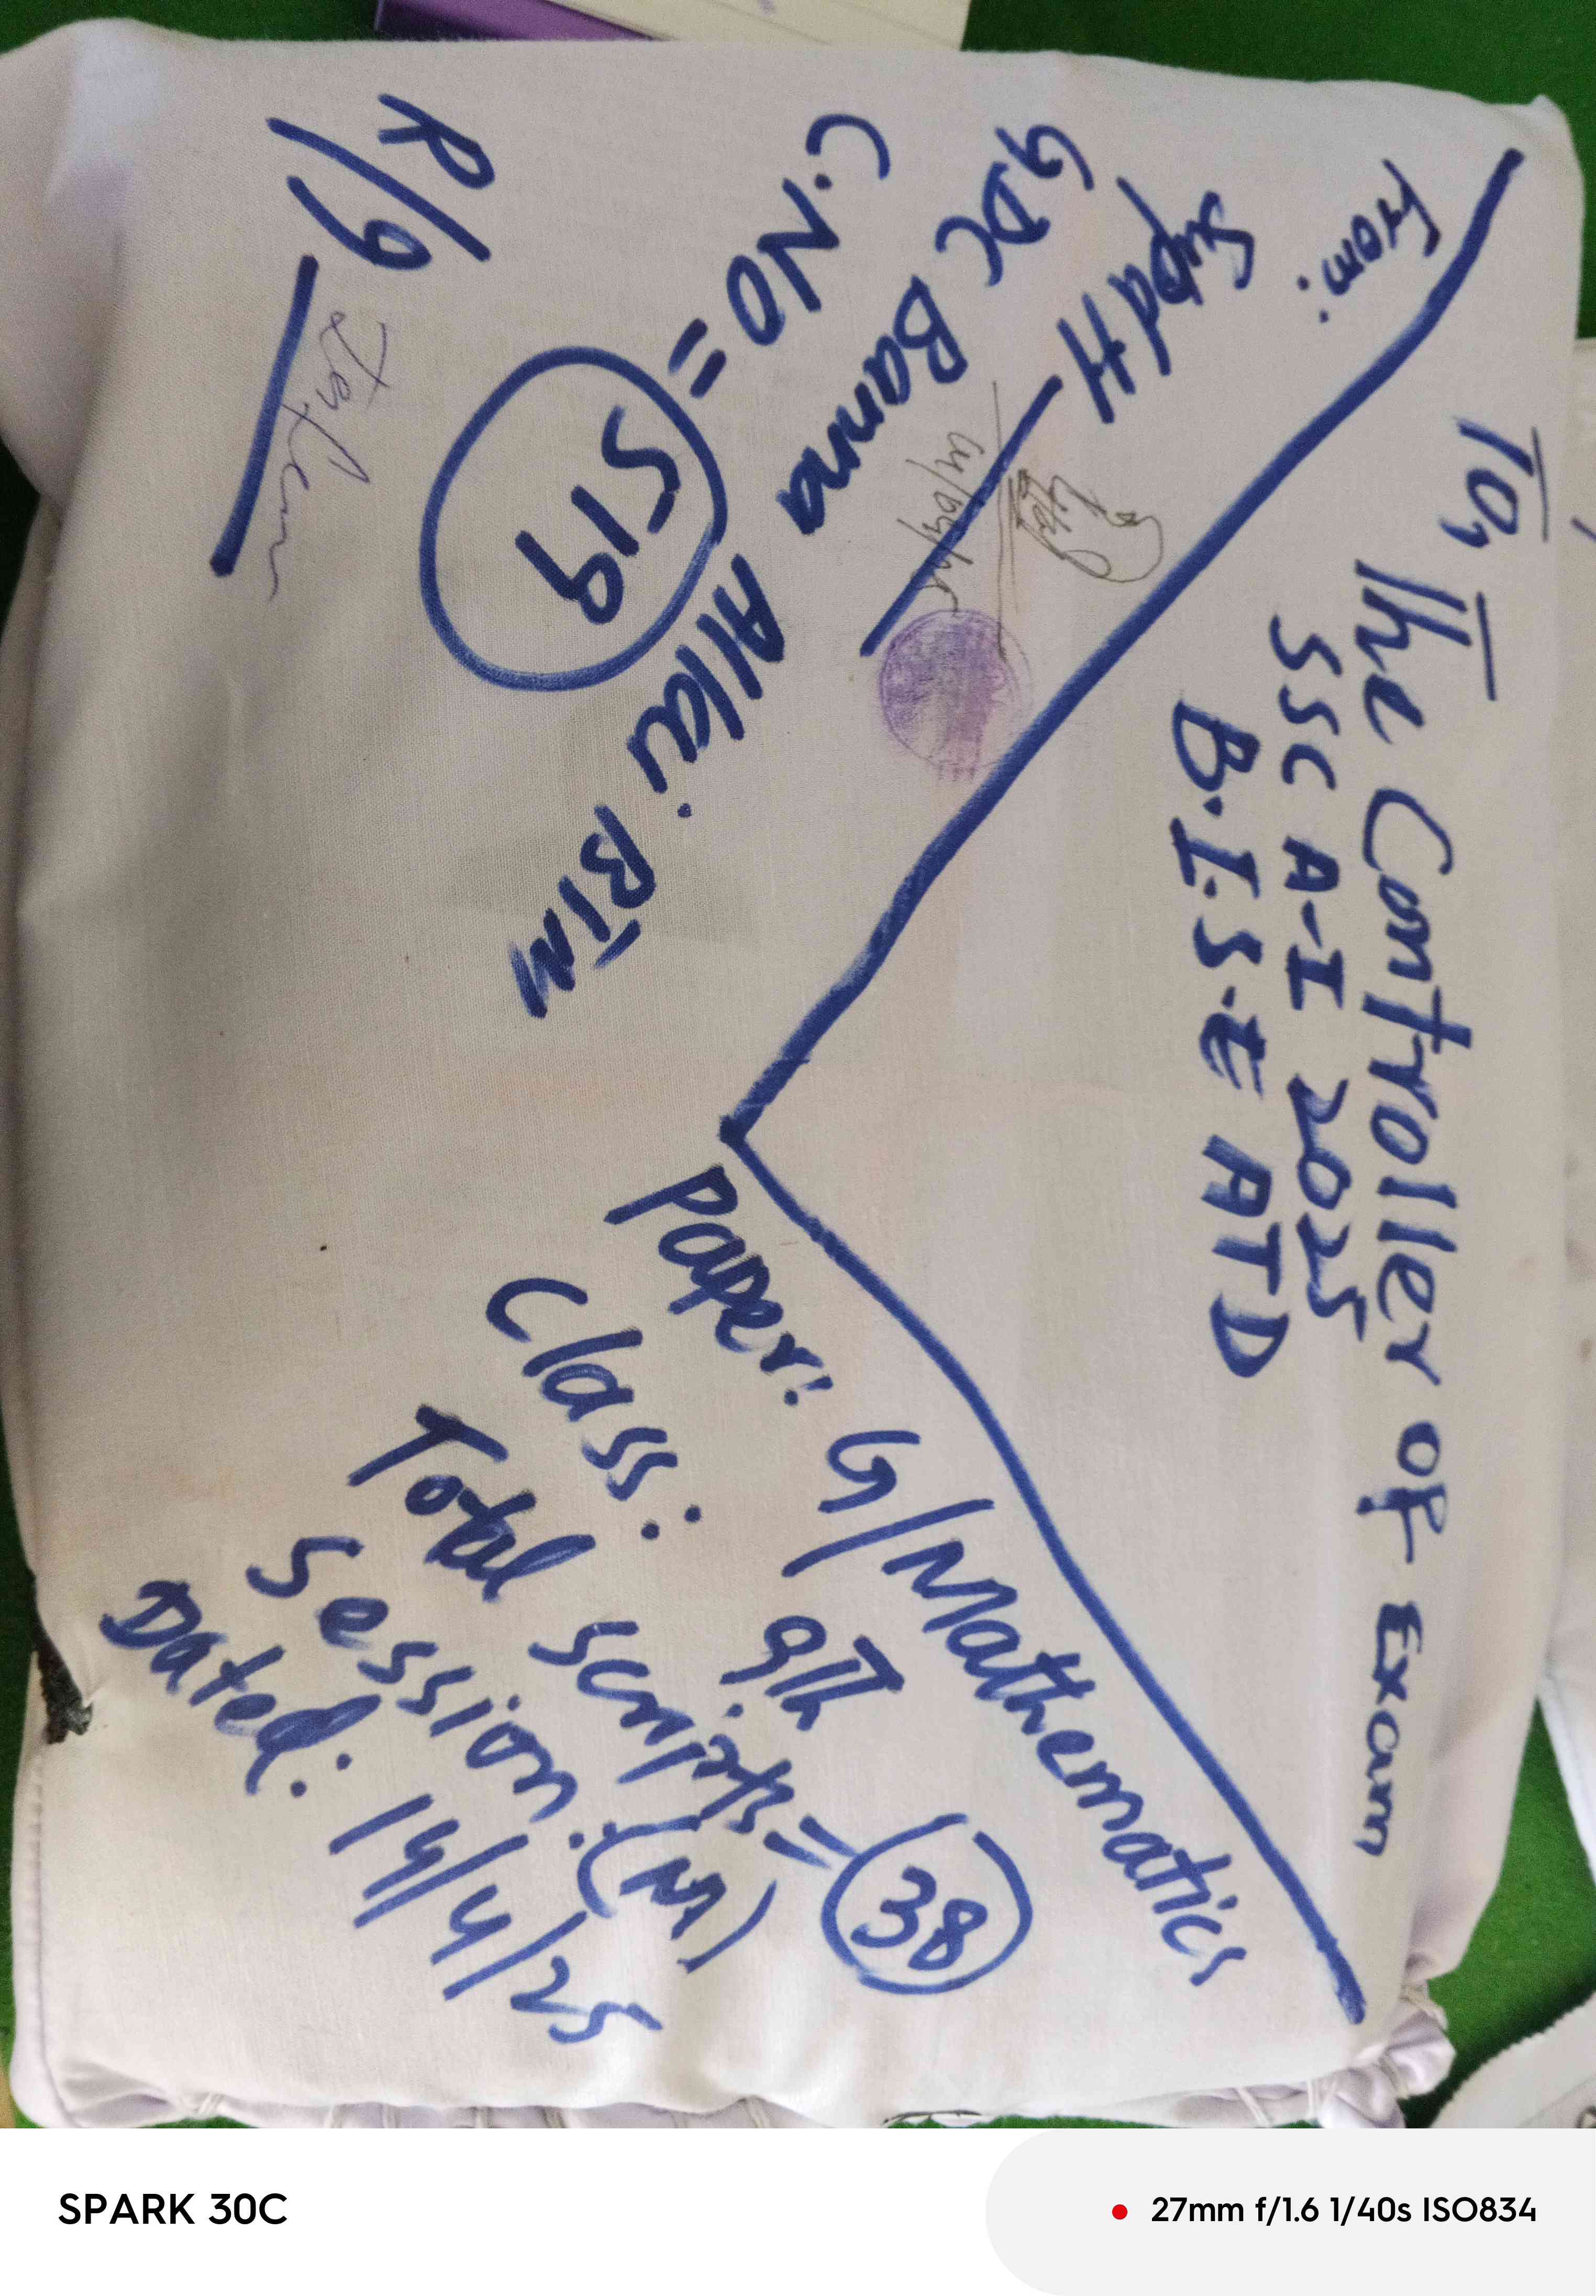 To, The Controller OF Exam
SSC A-I 2025
B.I.S.E ATD
From:
Supdtt
GDC Banna Allai BTM
C.NO = 519
R/9
Paper: G/Mathematics
Class: 9th
Total scripts = 38
Session: (M)
Dated: 14/4/25
SPARK 30C
27mm f/1.6 1/40s ISO834